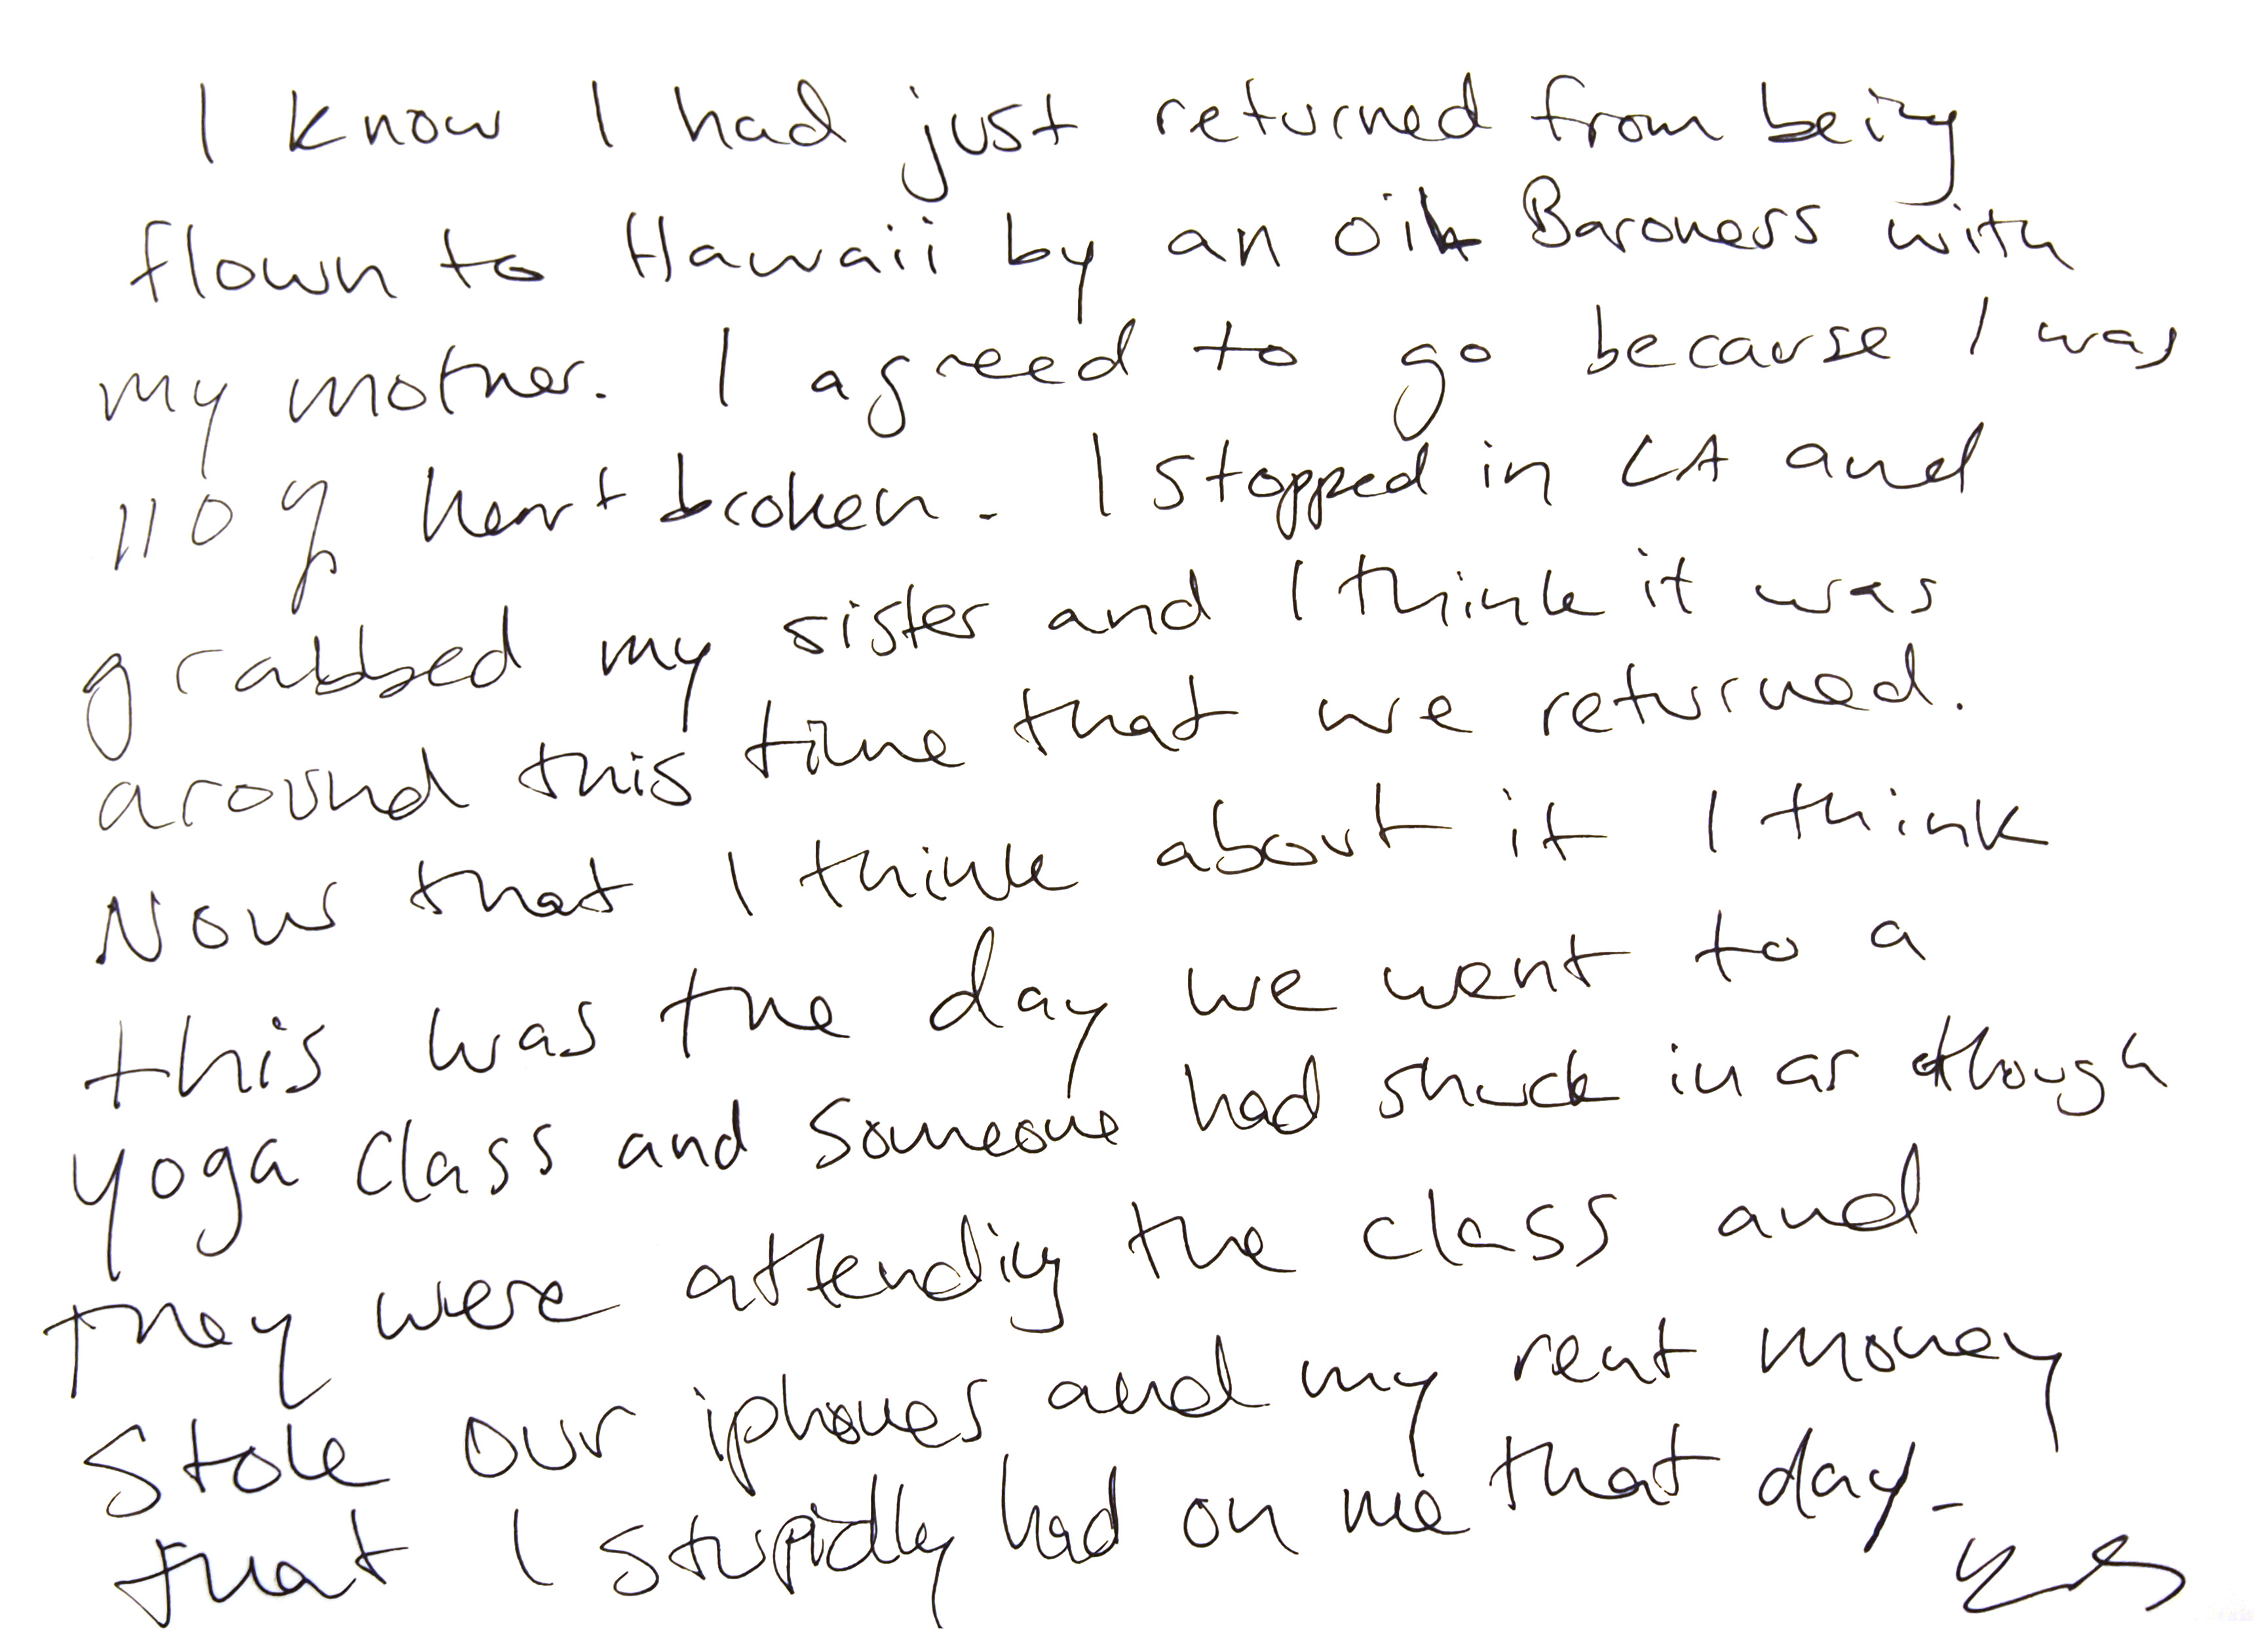 I know I had just returned from being
flown to Hawaii by an oil Baroness with
my mother. I agreed to go because I was
110% heart broken. I stopped in LA and
grabbed my sister and I think it was
around this time that we returned.
Now that I think about it I think
this was the day we went to a
yoga class and someone had snuck in as though
they were attending the class and
stole our iphones and my rent money
that I stupidly had on me that day-